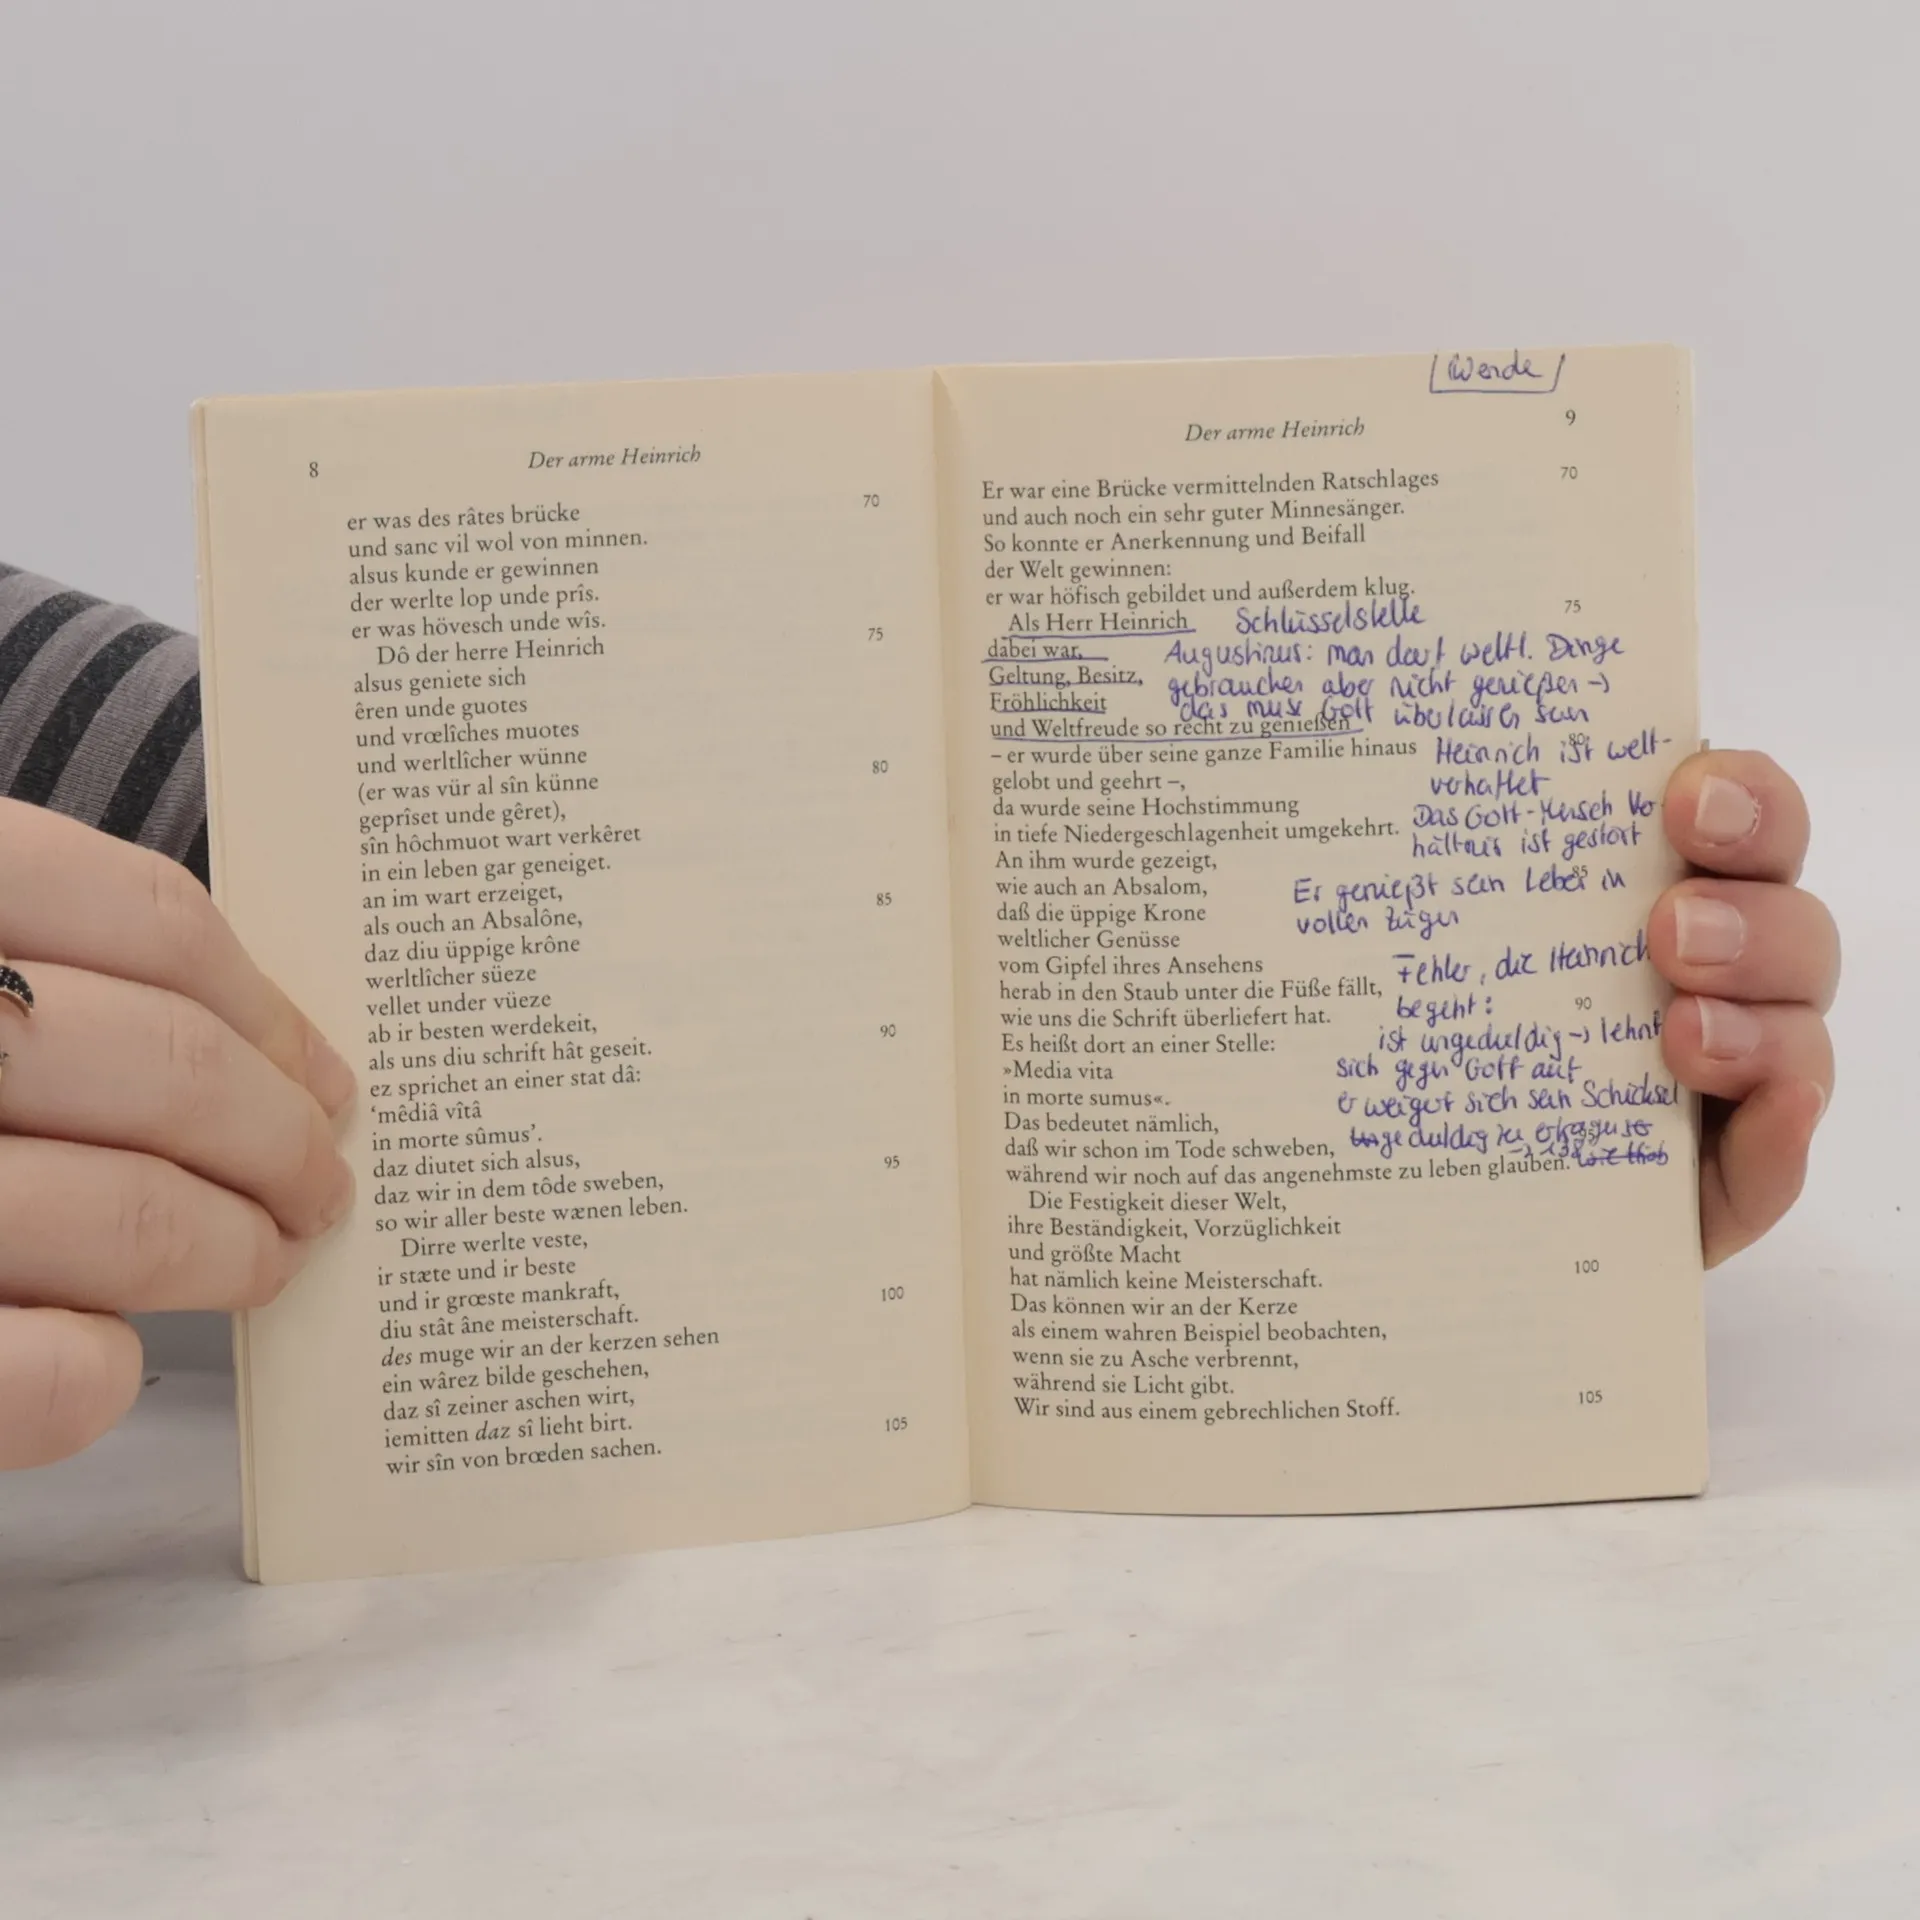 8
Der arme Heinrich
er was des râtes brücke 70
und sanc vil wol von minnen.
alsus kunde er gewinnen
der werlte lop unde prîs.
er was hövesch unde wîs.
Dô der herre Heinrich 75
alsus geniete sich
êren unde guotes
und vrœlîches muotes
und werltlîcher wünne
(er was vür al sîn künne 80
geprîset unde gêret),
sîn hôchmuot wart verkêret
in ein leben gar geneiget.
an im wart erzeiget,
als ouch an Absalône, 85
daz diu üppige krône
werltlîcher süeze
vellet under vüeze
ab ir besten werdekeit,
als uns diu schrift hât geseit. 90
ez sprichet an einer stat dâ:
‘mêdiâ vîtâ
in morte sûmus’.
daz diutet sich alsus,
daz wir in dem tôde sweben, 95
so wir aller beste wænen leben.
Dirre werlte veste,
ir stæte und ir beste
und ir grœste mankraft,
diu stât âne meisterschaft. 100
des muge wir an der kerzen sehen
ein wârez bilde geschehen,
daz sî zeiner aschen wirt,
iemitten daz sî lieht birt.
wir sîn von brœden sachen. 105
Wende
Der arme Heinrich
9
Er war eine Brücke vermittelnden Ratschlages 70
und auch noch ein sehr guter Minnesänger.
So konnte er Anerkennung und Beifall
der Welt gewinnen:
er war höfisch gebildet und außerdem klug.
Als Herr Heinrich 75
dabei war,
Geltung, Besitz,
Fröhlichkeit
und Weltfreude so recht zu genießen
– er wurde über seine ganze Familie hinaus 80
gelobt und geehrt –,
da wurde seine Hochstimmung
in tiefe Niedergeschlagenheit umgekehrt.
An ihm wurde gezeigt,
wie auch an Absalom, 85
daß die üppige Krone
weltlicher Genüsse
vom Gipfel ihres Ansehens
herab in den Staub unter die Füße fällt,
wie uns die Schrift überliefert hat. 90
Es heißt dort an einer Stelle:
»Media vita
in morte sumus«.
Das bedeutet nämlich,
daß wir schon im Tode schweben,
während wir noch auf das angenehmste zu leben glauben.
Die Festigkeit dieser Welt,
ihre Beständigkeit, Vorzüglichkeit
und größte Macht
hat nämlich keine Meisterschaft. 100
Das können wir an der Kerze
als einem wahren Beispiel beobachten,
wenn sie zu Asche verbrennt,
während sie Licht gibt.
Wir sind aus einem gebrechlichen Stoff. 105
Schlüsselstelle
Augustinus: man darf weltl. Dinge
gebrauchen aber nicht genießen →
das muss Gott überlassen sein
Heinrich ist welt-
verhaftet
Das Gott-Mensch Ver
hältnis ist gestört
Er genießt sein Leben in
vollen Zügen
Fehler, die Heinrich
begeht:
ist ungeduldig → lehnt
sich gegen Gott auf
er weigert sich sein Schicksal
geduldig zu ertragen
→ 138